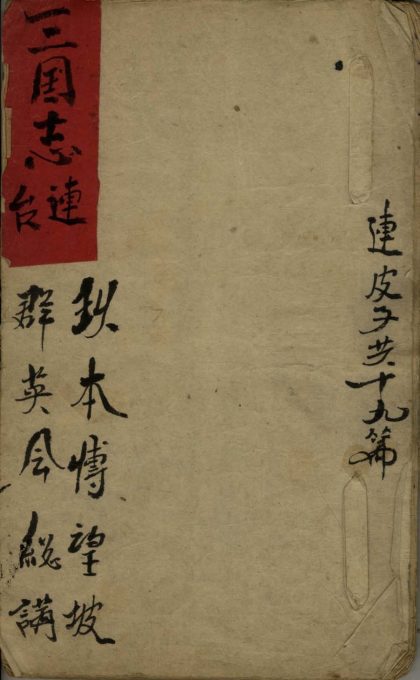 連皮子共十九篇
三国志
連
台
本愽望坡
群英会総講